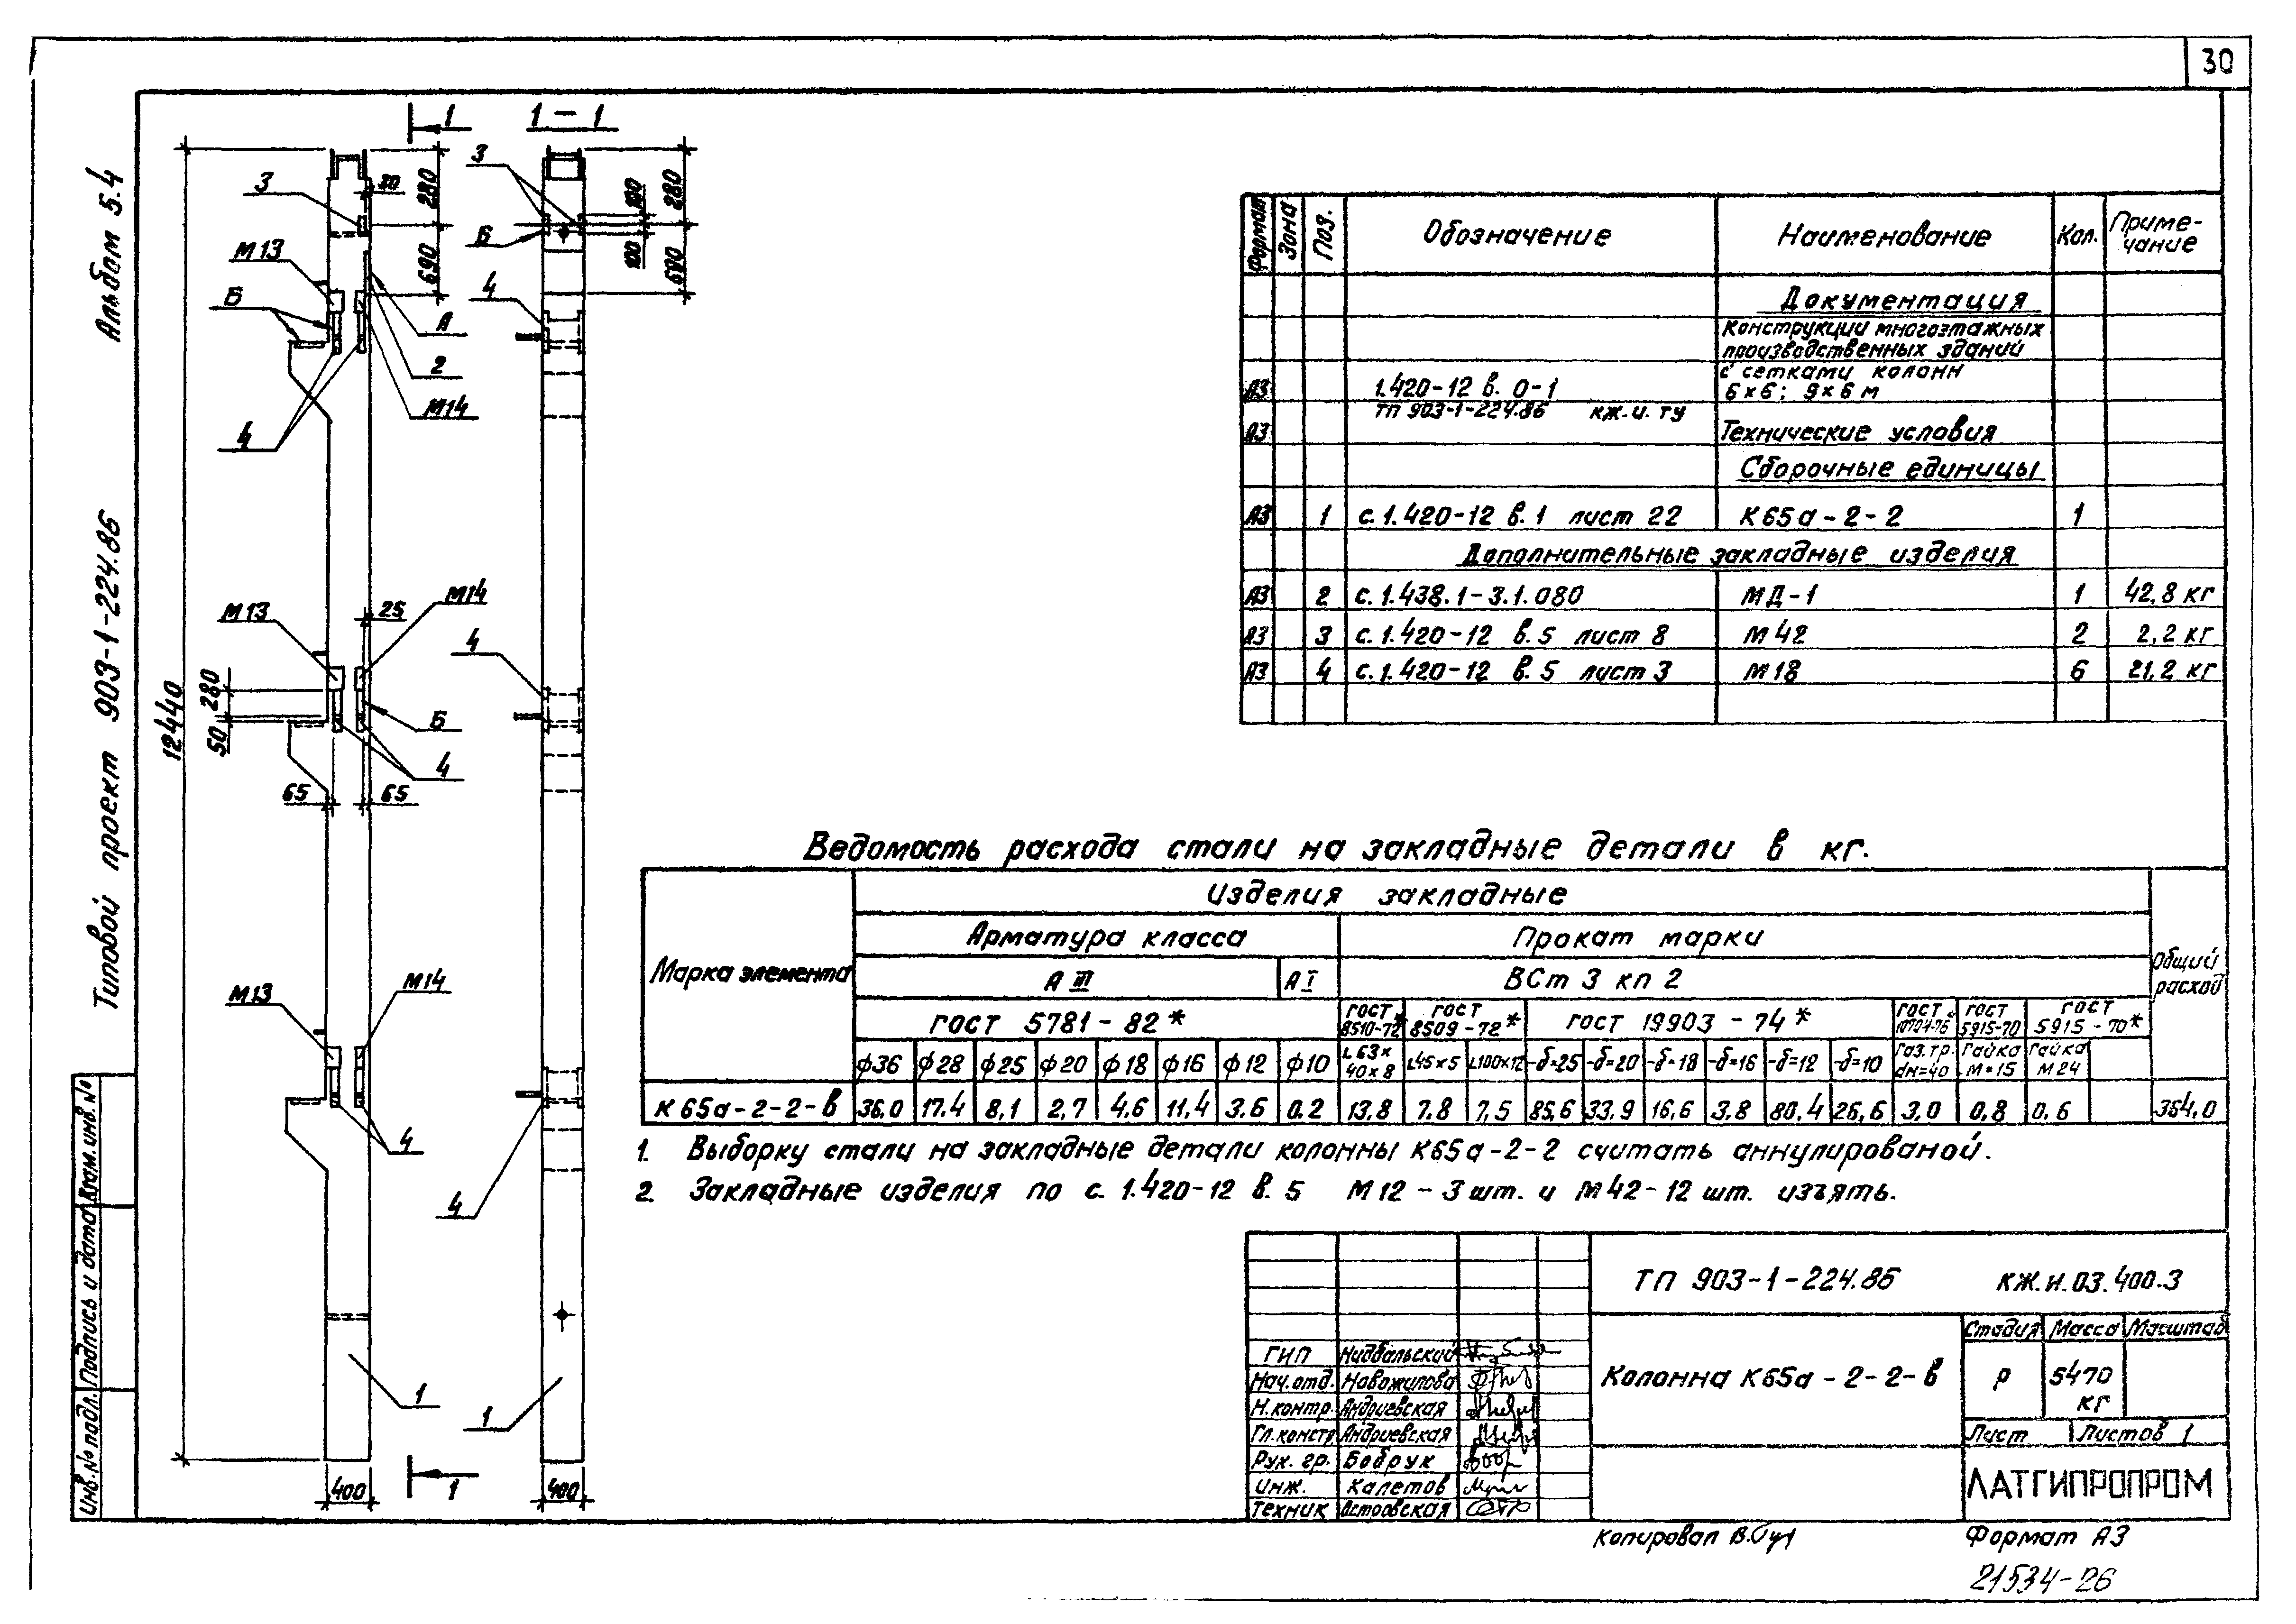 30
Альбом 5.4
Типовой проект 903-1-224.86
Инв.№ подл. Подпись и дата Взам. инв. №
1
1 – 1
3
30
280
690
М13
Б
А
2
М14
4
3
Б
100
100
280
690
4
12440
М13
М14
25
280
50
Б
4
65
65
4
М13
М14
4
4
1
1
400
1
400
Формат Зона Поз. Обозначение Наименование Кол. Приме-
чание
Документация
Конструкции многоэтажных
производственных зданий
с сетками колонн
А3 1.420-12 в. 0-1 6×6; 9×6 м
ТП 903-1-224.86 кж.и. ту
А3 Технические условия
Сборочные единицы
А3 1 с.1.420-12 в.1 лист 22 К65а-2-2 1
Дополнительные закладные изделия
А3 2 с.1.438.1-3.1.080 МД-1 1 42,8 кг
А3 3 с.1.420-12 в.5 лист 8 М42 2 2,2 кг
А3 4 с.1.420-12 в.5 лист 3 М18 6 21,2 кг
Ведомость расхода стали на закладные детали в кг.
Марка элемента Изделия закладные Общий
расход
Арматура класса Прокат марки
А III А I ВСт 3 кп 2
гост 5781-82* гост
8510-72* гост
8509-72* гост 19903-74* гост
10704-76 гост
5915-70 гост
5915-70*
ф36 ф28 ф25 ф20 ф18 ф16 ф12 ф10 L63×
40×8 L45×5 L100×12 -δ=25 -δ=20 -δ=18 -δ=16 -δ=12 -δ=10 Газ.тр.
dн=40 Гайка
М=15 Гайка
М24
К65а-2-2-в 36.0 17.4 8,1 2,7 4,6 11,4 3.6 0.2 13.8 7.8 7,5 85,6 33.9 16,6 3.8 80,4 26,6 3.0 0,8 0,6 364,0
1. Выборку стали на закладные детали колонны К65а-2-2 считать аннулированой.
2. Закладные изделия по с. 1.420-12 в. 5 М12-3шт. и М42-12 шт. изъять.
ТП 903-1-224.86 КЖ.И.03.400.3
Колонна К65а-2-2-в
Стадия Масса Масштаб
Р 5470
кг
Лист Листов 1
ЛАТГИПРОПРОМ
ГИП Нидбальский
Нач.отд. Новожилова
Н.контр. Андриевская
Гл.констр Андриевская
Рук. гр. Бобрук
Инж. Калетов
Техник Островская
Копировал
Формат А3
21534-26